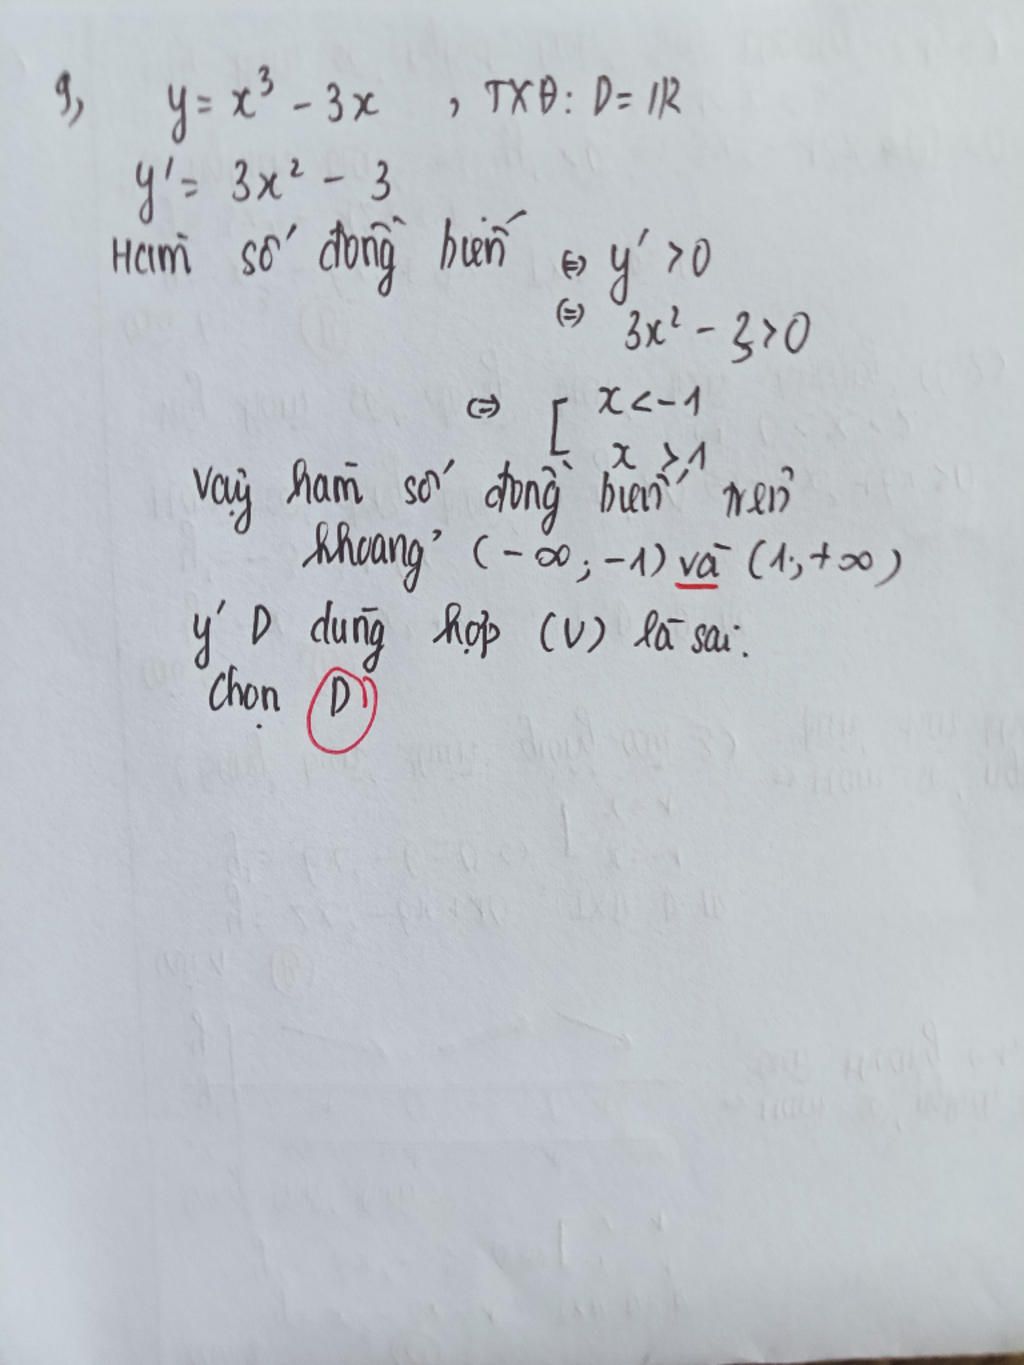 9, y = x³ - 3x , TXĐ: D = ℝ
y' = 3x² - 3
Hàm số đồng biến ⇔ y' > 0
⇔ 3x² - 3 > 0
⇔ [ x < -1
x > 1
Vậy hàm số đồng biến trên
khoảng (-∞; -1) và (1; +∞)
ý D dùng hợp (∪) là sai.
Chọn D